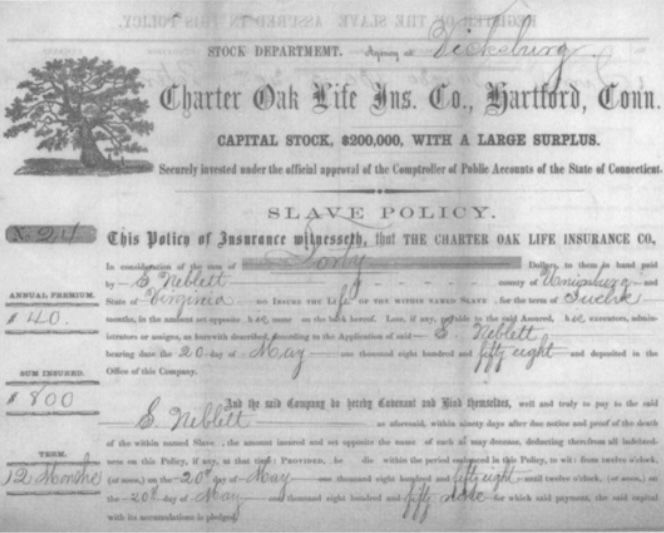 REGISTER OF THE SLAVE ASSURED IN THIS POLICY.
STOCK DEPARTMEMT. Agency at Vicksburg.
Charter Oak Life Ins. Co., Hartford, Conn.
CAPITAL STOCK, $200,000, WITH A LARGE SURPLUS.
Securely invested under the official approval of the Comptroller of Public Accounts of the State of Connecticut.
SLAVE POLICY.
This Policy of Insurance witnesseth, that THE CHARTER OAK LIFE INSURANCE CO,
In consideration of the sum of Forty Dollars, to them in hand paid
by S Neblett county of and
ANNUAL PREMIUM.
State of Virginia DO INSURE THE Life OF THE WITHIN NAMED SLAVE, for the term of Twelve
$ 40.
months, in the amount set opposite his name on the back hereof. Loss, if any, payable to the said Assured, his executors, admin-
istrators or assigns, as herewith described, according to the Application of said S. Neblett
bearing date the 20 day of May one thousand eight hundred and fifty eight and deposited in the
Office of this Company.
SUM INSURED.
$ 800
And the said Company do hereby Covenant and Bind themselves, well and truly to pay to the said
S. Neblett as aforesaid, within ninety days after due notice and proof of the death
of the within named Slave, the amount insured and set opposite the name of each as may decease, deducting therefrom all indebted-
TERM.
ness on this Policy, if any, at that time: PROVIDED, he die within the period embraced in this Policy, to wit: from twelve o'clock,
12 Months
(at noon,) on the 20th day of May one thousand eight hundred and fifty eight until twelve o'clock, (at noon,) on
the 20th day of May one thousand eight hundred and fifty nine for which said payment, the said capital
with its accumulations is pledged.